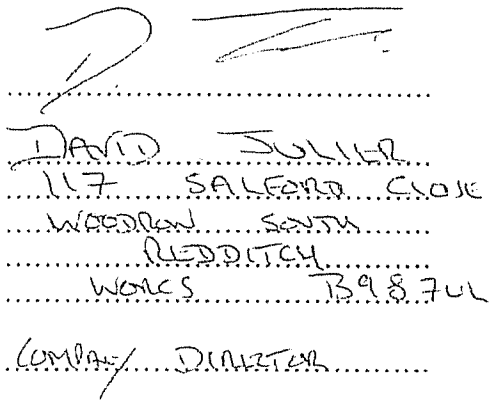 DAVID JULIER
117 SALFORD CLOSE
WOODROW SOUTH
REDDITCH
WORCS B98 7UL
COMPANY DIRECTOR